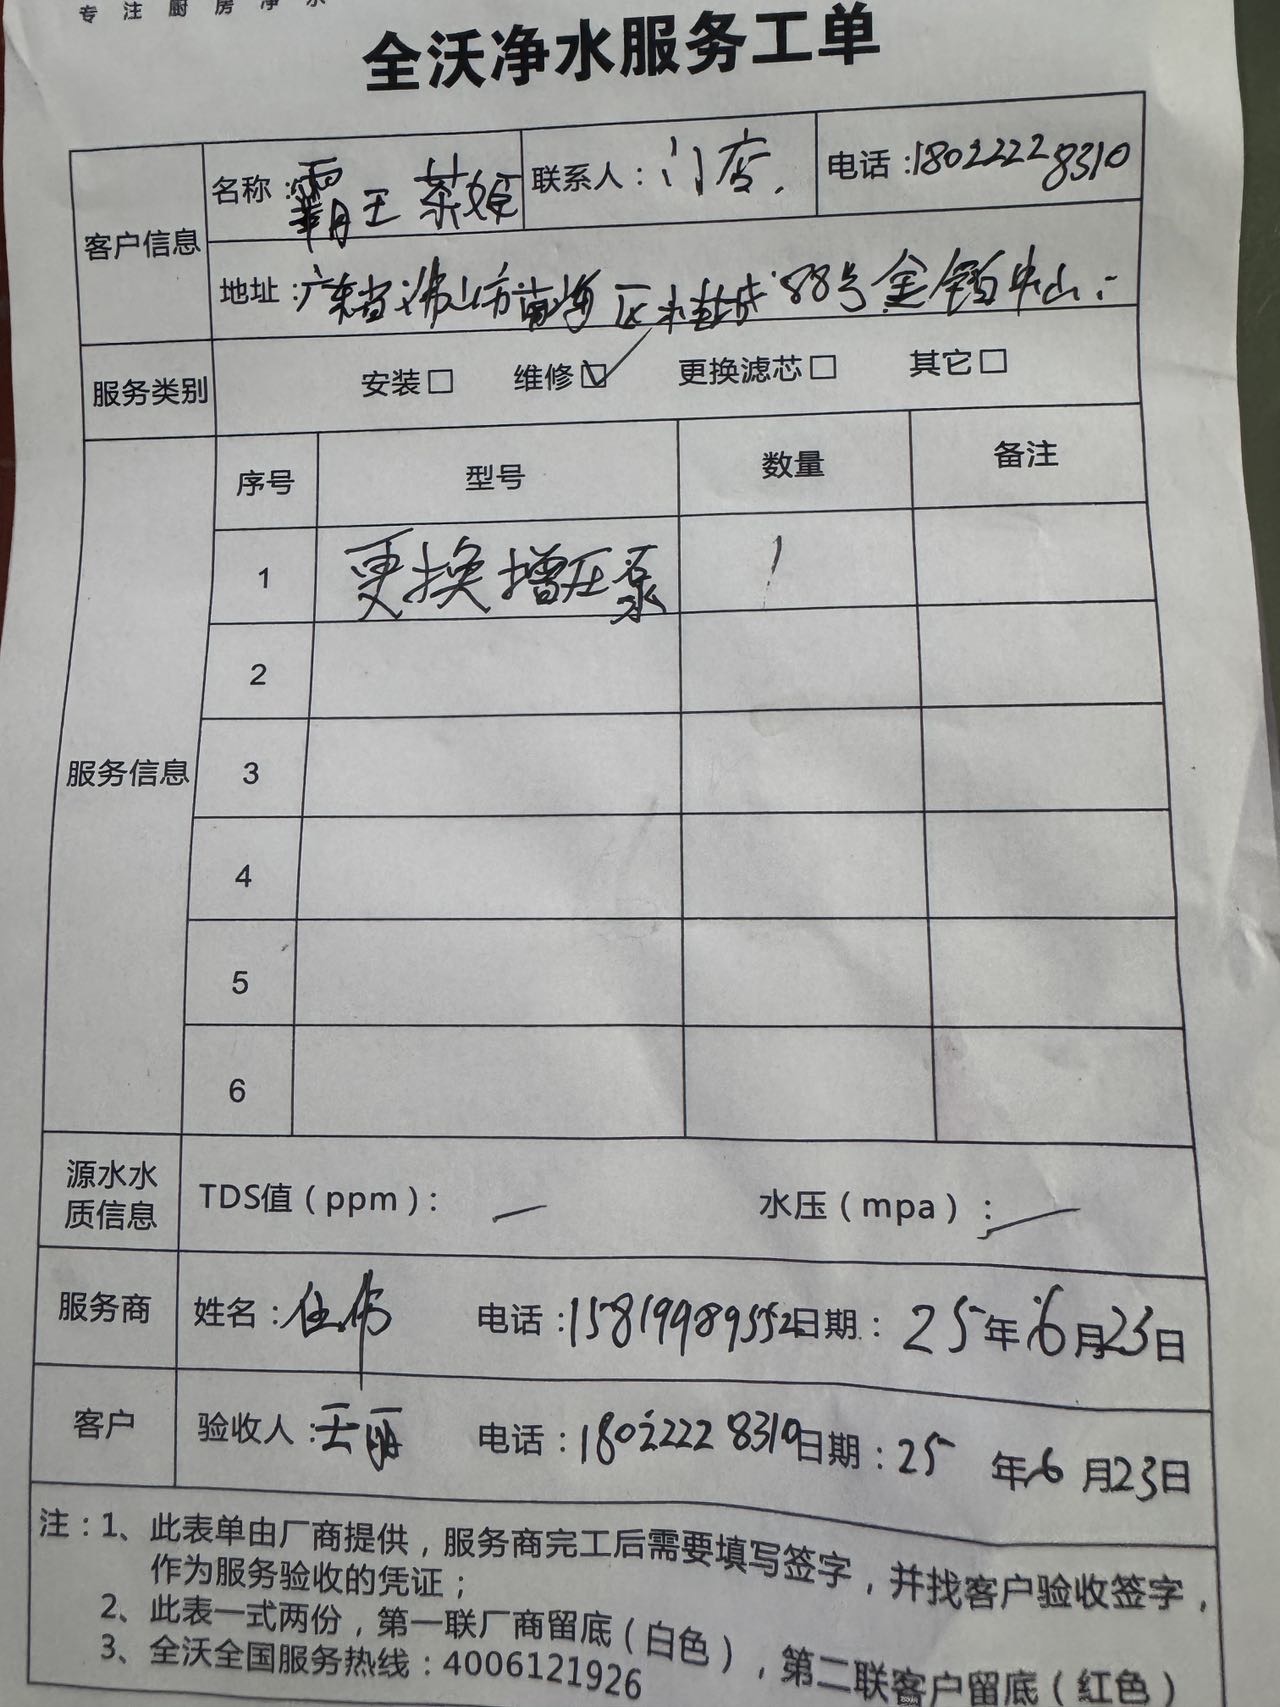 专注厨房净水
全沃净水服务工单
客户信息
名称：霸王茶姬 联系人：门店. 电话：18022228310
地址：广东省佛山市南海区桂城88号金铂中山
服务类别 安装□ 维修☑ 更换滤芯□ 其它□
服务信息
序号 型号 数量 备注
1 更换增压泵 1
2
3
4
5
6
源水水质信息 TDS值（ppm）： — 水压（mpa）： —
服务商 姓名： 电话：15819989552 日期：25年6月23日
客户 验收人：王丽 电话：18022228310 日期：25年6月23日
注：1、此表单由厂商提供，服务商完工后需要填写签字，并找客户验收签字，
作为服务验收的凭证；
2、此表一式两份，第一联厂商留底（白色），第二联客户留底（红色）
3、全沃全国服务热线：4006121926